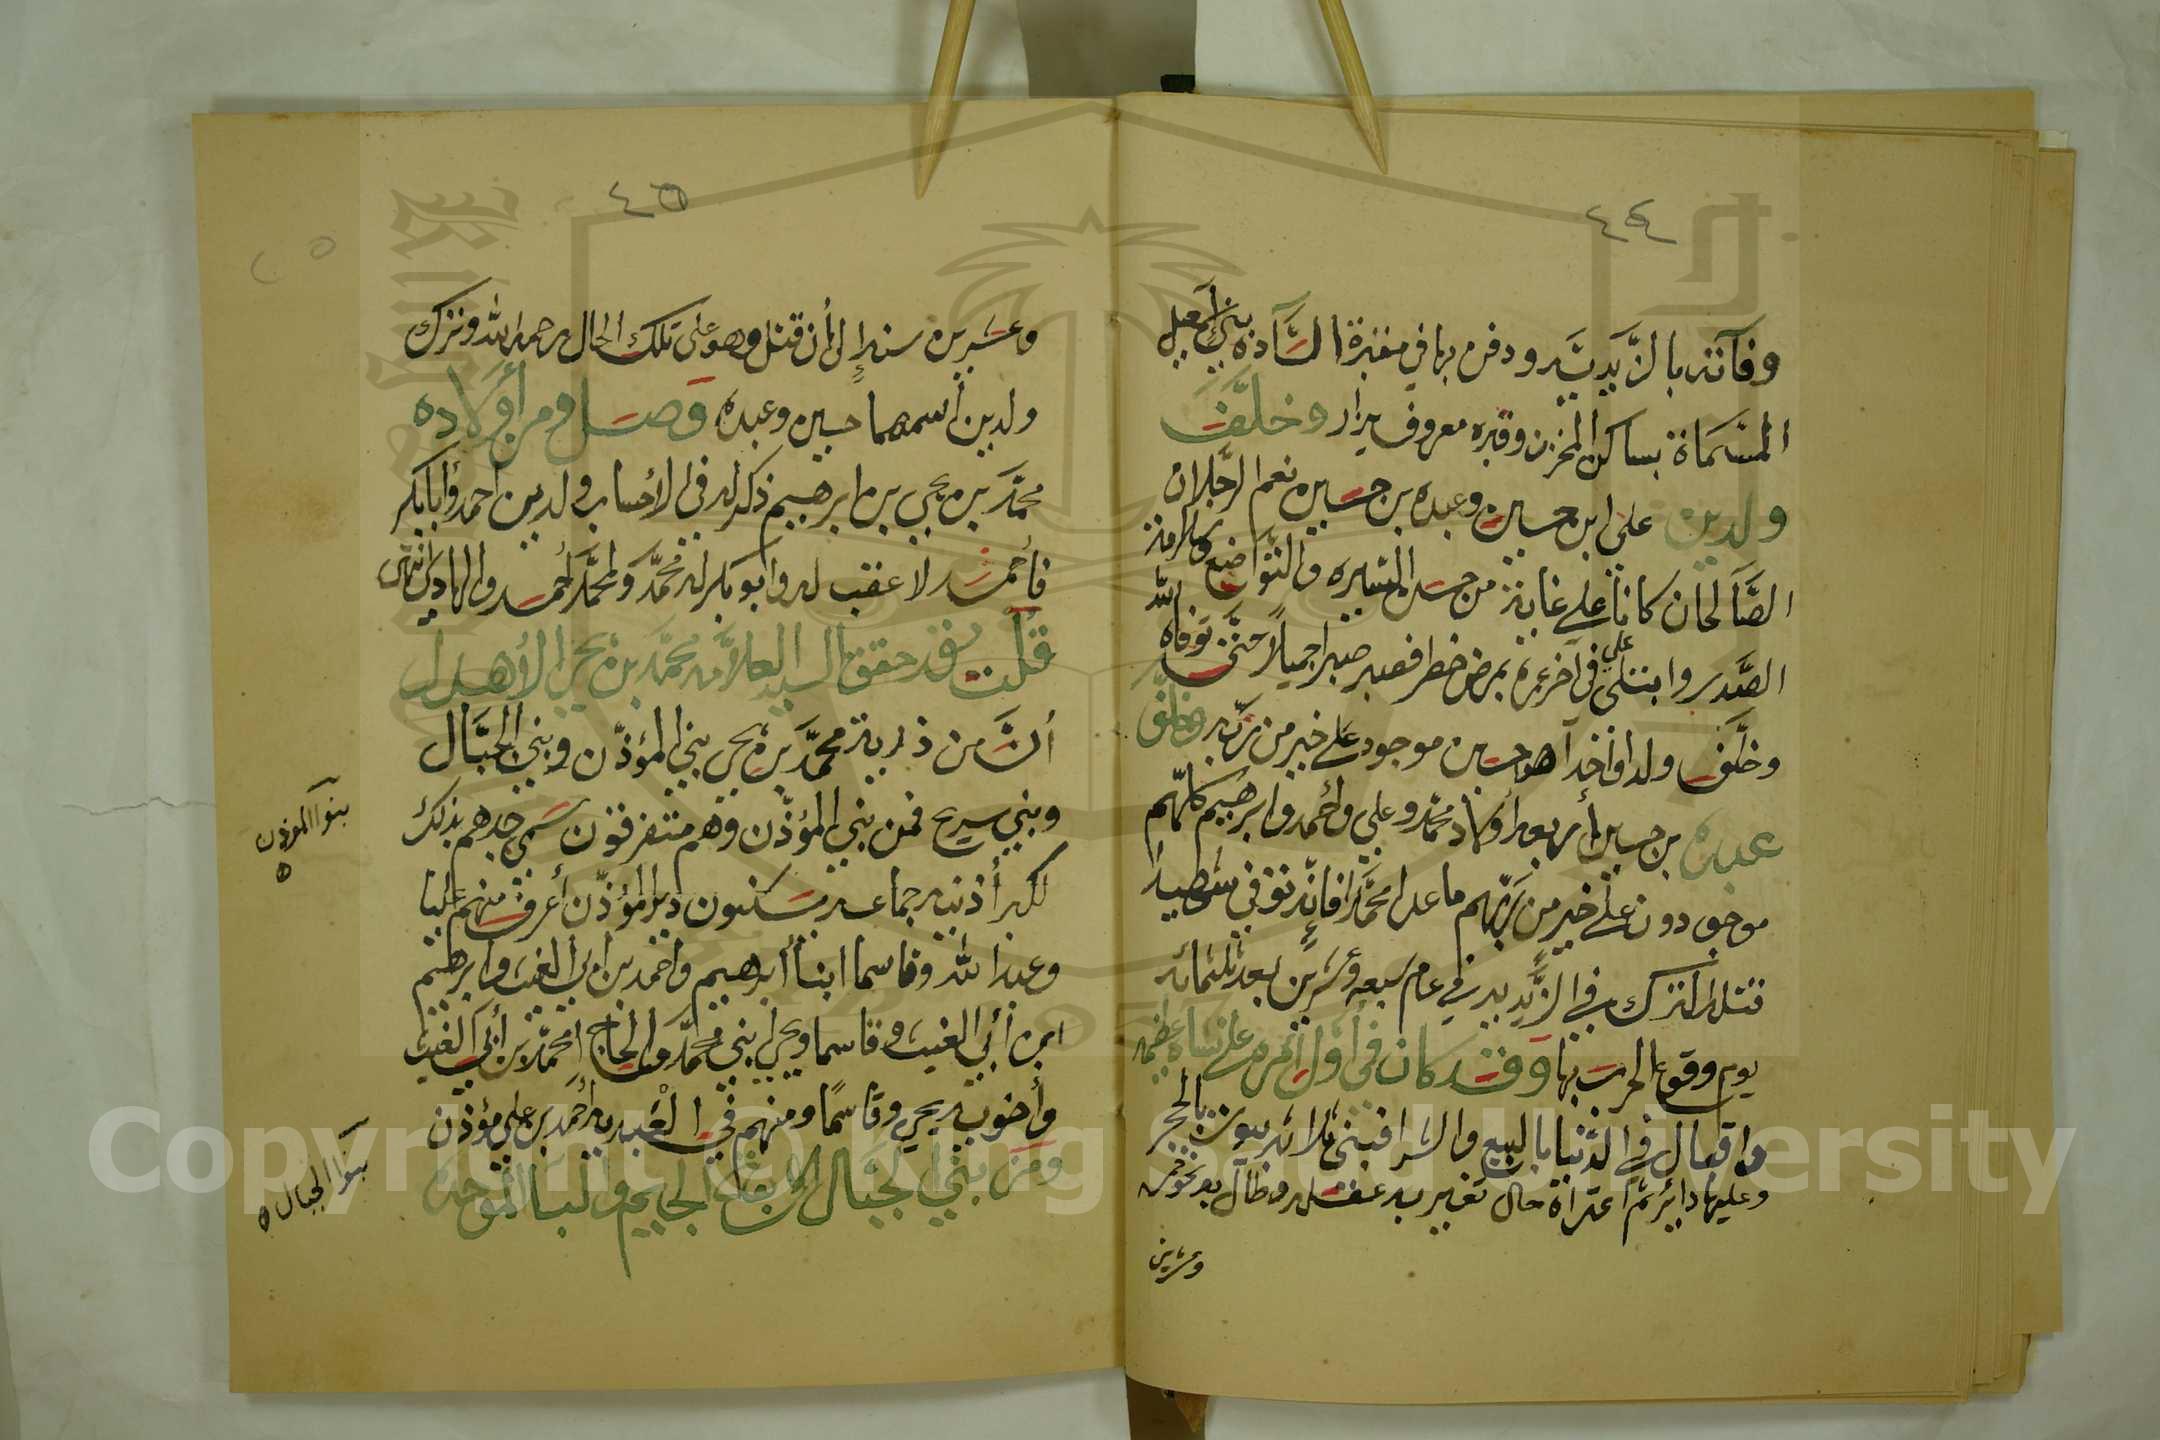 ٤٤
وفآته بالزيديّه ودفن بها في مقبرة السّآده بني اسمعيل
المسّماة بساكن المخزن وقبره معروف يزار وخلَّف
ولدين علي ابن حسين وعبده بن حسين نعم الرّجلان
الصَّآلحان كانا على غاية من حسن السيره والتوّاضع وسلامة
الصَّدر وابتلى علي في آخر عمره بمرض خطر فصبر صبرا جميلاً حتى توفاه الله
وخلَّف ولدا واحدا هو حسين موجود على خير من ربّه وخلّف
عبده بن حسين أربعه أولاد محمّد وعلي وأحمد وابرهيم كلّهم
موجودون على خير من ربّهم ما عدا محمَّدا فانّه توفي شهيدا
قتله الترك في الزّيديه في عام سبعه وعشرين بعد ثلثمائه
يوم وقوع الحرب بها وقد كان في أوّل أمره على نباهة عظيمه
واقبال في الدّنيا بالبيع والشرا فبنى ثلاثه بيوت بالحجر
وعليها دائر ثم اعتراه حال تغير به عقله وطال به نحو خمس
وعشرين
٤٥
وعشرين سنه إلى أن قتل وهو على تلك الحال رحمه الله وترك
ولدين أسمهما حسين وعبده وصل ومن أولاده
محمّد بن يحي بن ابرهيم ذكر له في الأحساب ولدين احمد وأبابكر
فأحمد لا عقب له وابو بكر له محمّد ولمحمَّد أحمد والهادي انتهى
قلت وقد حقق السيد العلامه محمَّد بن يحي الأهدل
أنَّ من ذرية محمَّد بن يحي بني المؤذّن وبني الجبَّال
وبني سريح فمن بني المؤذّن وهم متفرقون سمي جدهم بذلك
لكبر أذنيه جماعه يسكنون دير المؤذّن أعرف منهم عليا
وعبد الله وقاسما ابنا أبرهيم واحمد بن أبي الغيث وابرهيم
ابن أبي الغيث وقاسما ويحي ابني محمَّد والحاج امحمَّد بن أبي الغيث
وأخويه يحي وقاسمًا ومنهم في أحمد بن علي مؤذن
ومن بني الجبّال
بنوآ المؤذن
بنوآ الجبال
Copyright © King Saud University